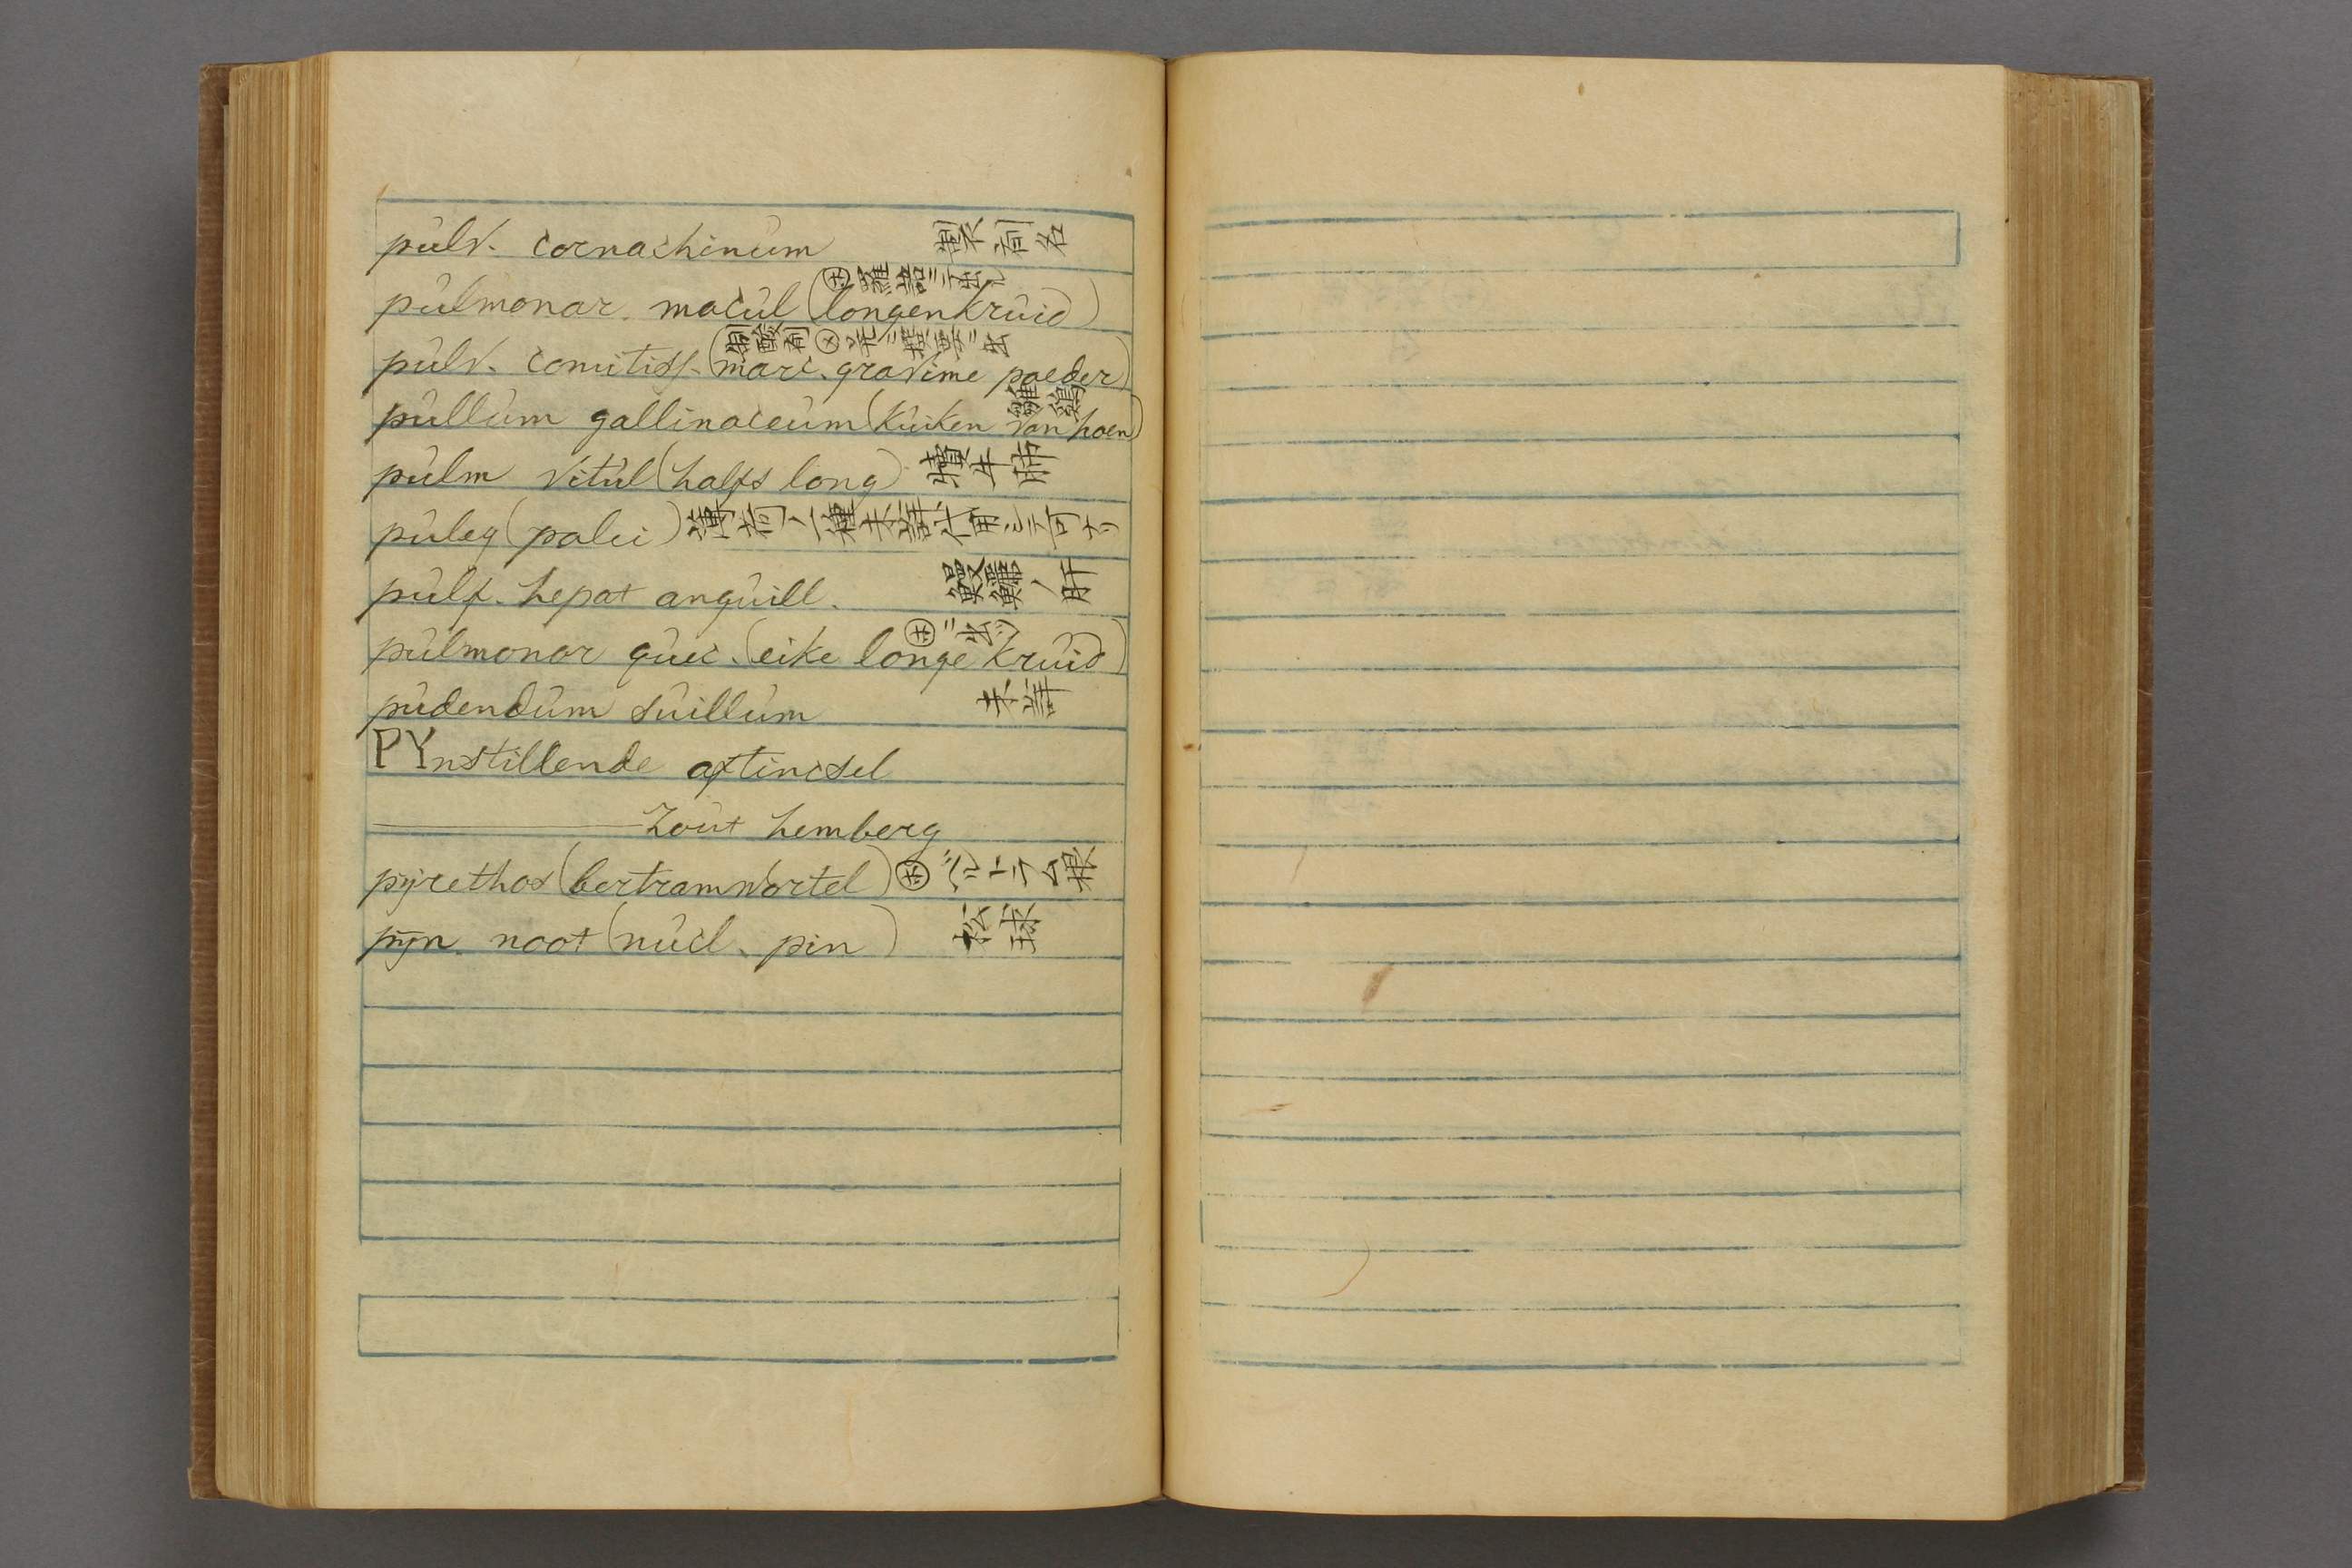 pulv. cornachinum 製不 剤名
pulmonar. macul (longenkruid) ㋭ 羅譜ニ出
pulv. comitiss. (marc. gravime poeder) 制酸剤
pullum gallinaceum (kuiken van hoen) 雛鶏
pulm vitul (halfs long) 犢牛肺
puleg (polei) 薄荷ノ一種未詳代用シテ可ナリ
pulf. hepat anguill. 鰻鱺ノ肝
pulmonar quec. (eike longe kruid) ㋭ニ出ツ
pudendum suillum 未詳
PYnstillende aftincsel
zout hemberg
pyrethos (bertramwortel) ㋭ ベルトラム根
pÿn. noot (nucl. pin) 松球